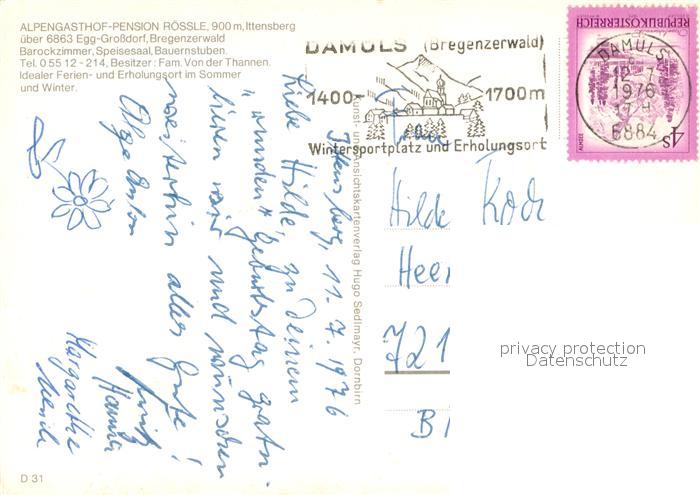 ALPENGASTHOF-PENSION RÖSSLE, 900 m, Ittensberg
über 6863 Egg-Großdorf, Bregenzerwald
Barockzimmer, Speisesaal, Bauernstuben.
Tel. 0 55 12 - 214, Besitzer: Fam. Von der Thannen.
Idealer Ferien- und Erholungsort im Sommer
und Winter.
DAMÜLS (Bregenzerwald)
1400- 1700m
Wintersportplatz und Erholungsort
REPUBLIK ÖSTERREICH
4S
ALMSEE
DAMÜLS
12.-7.
1976
6884
Ittensberg, 11.7.1976
Liebe Hilde, zu Deinem
"runden" Geburtstag gratu-
lieren wir und wünschen
weiterhin alles Gute!
Fritz
Hanna
Margarethe
Kunst- und Ansichtskartenverlag Hugo Sedlmayr, Dornbirn
Frau
Hilde Koch
Heer
721
B
privacy protection
Datenschutz
D 31